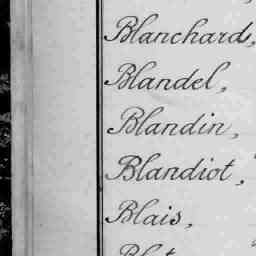 Blanchard,
Blandel,
Blandin,
Blandiot,
Blais,